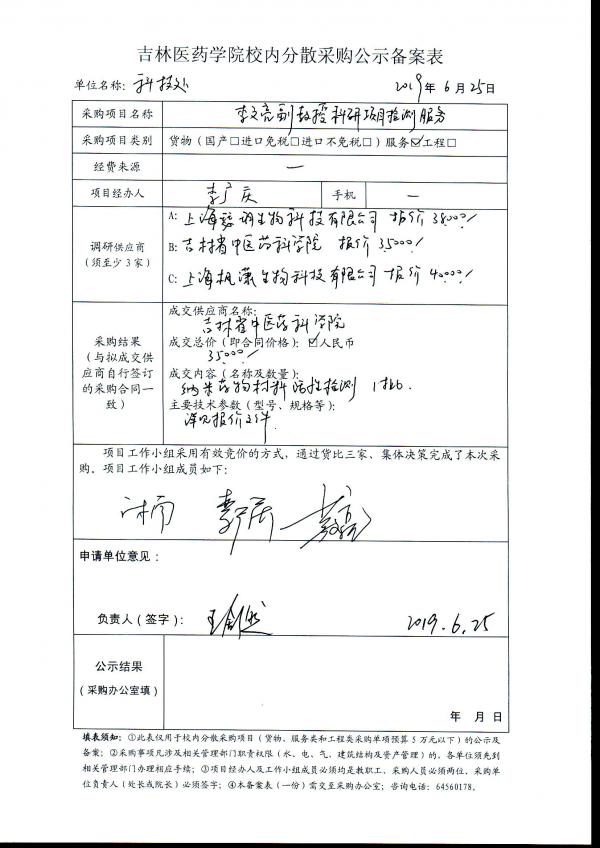 吉林医药学院校内分散采购公示备案表
单位名称：科技处 2019年6月25日
采购项目名称 李文亮副教授科研项目检测服务
采购项目类别 货物（国产□进口免税□进口不免税□）服务☑工程□
经费来源 —
项目经办人 李广庆 手机 —
调研供应商
（须至少3家）
A: 上海 生物科技有限公司 报价38000/
B: 吉林省中医药科学院 报价35000/
C: 上海枫潇生物科技有限公司 报价40000/
采购结果
（与拟成交供
应商自行签订
的采购合同一
致）
成交供应商名称：
吉林省中医药科学院
成交总价（即合同价格）：☑人民币
35000/
成交内容（名称及数量）：
纳米药物材料活性检测 1批.
主要技术参数（型号、规格等）：
详见报价文件
项目工作小组采用有效竞价的方式，通过货比三家、集体决策完成了本次采
购，项目工作小组成员如下：
申请单位意见：
负责人（签字）： 2019.6.25
公示结果
（采购办公室填）
年 月 日
填表须知：①此表仅用于校内分散采购项目（货物、服务类和工程类采购单项预算5万元以下）的公示及
备案；②采购事项凡涉及相关管理部门职责权限（水、电、气、建筑结构及资产管理）的，各单位须先到
相关管理部门办理相应手续；③项目经办人及工作小组成员必须均是教职工，采购人员必须两位，采购单
位负责人（处长或院长）必须签字；④本备案表（一份）需交至采购办公室；咨询电话：64560178。